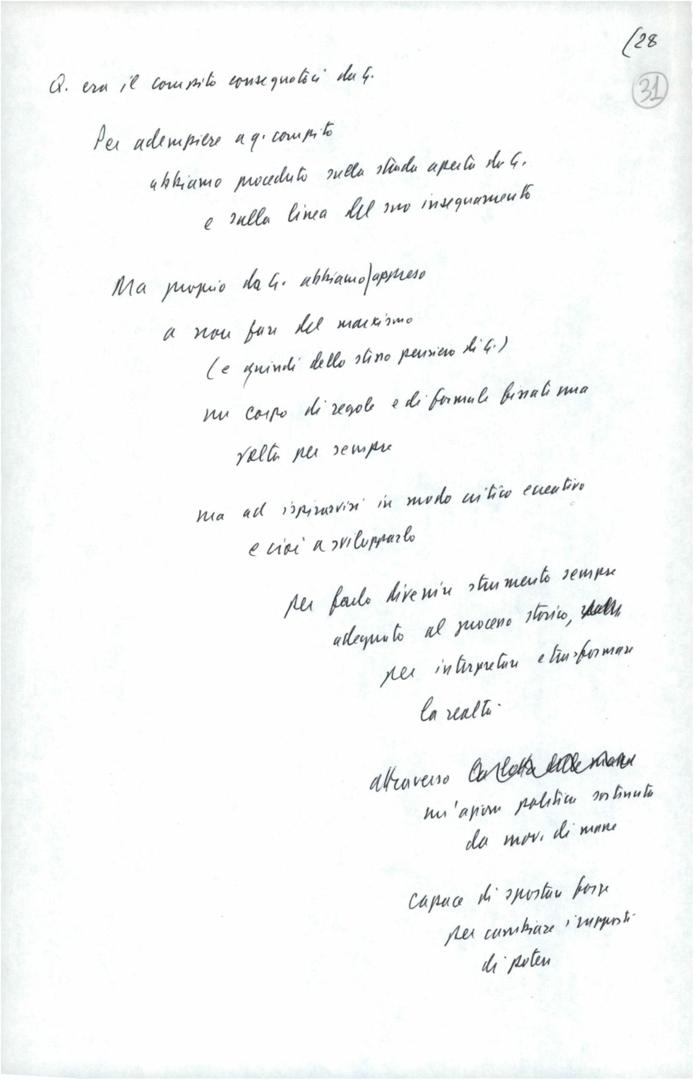 (28
31
Q. era il compito consegnatoci da G.
Per adempiere a q. compito
abbiamo proceduto sulla strada aperta da G.
e sulla linea del suo insegnamento
Ma proprio da G. abbiamo appreso
a non fare del marxismo
(e quindi dello stesso pensiero di G.)
un corpo di regole e di formule fissati una
volta per sempre
ma ad ispirarvisi in modo critico e creativo
e cioè a svilupparlo
per farlo divenire strumento sempre
adeguato al processo storico,
per interpretare e trasformare
la realtà
attraverso
un'azione politica sostenuta
da mov. di masse
capace di spostare forze
per cambiare i rapporti
di potere